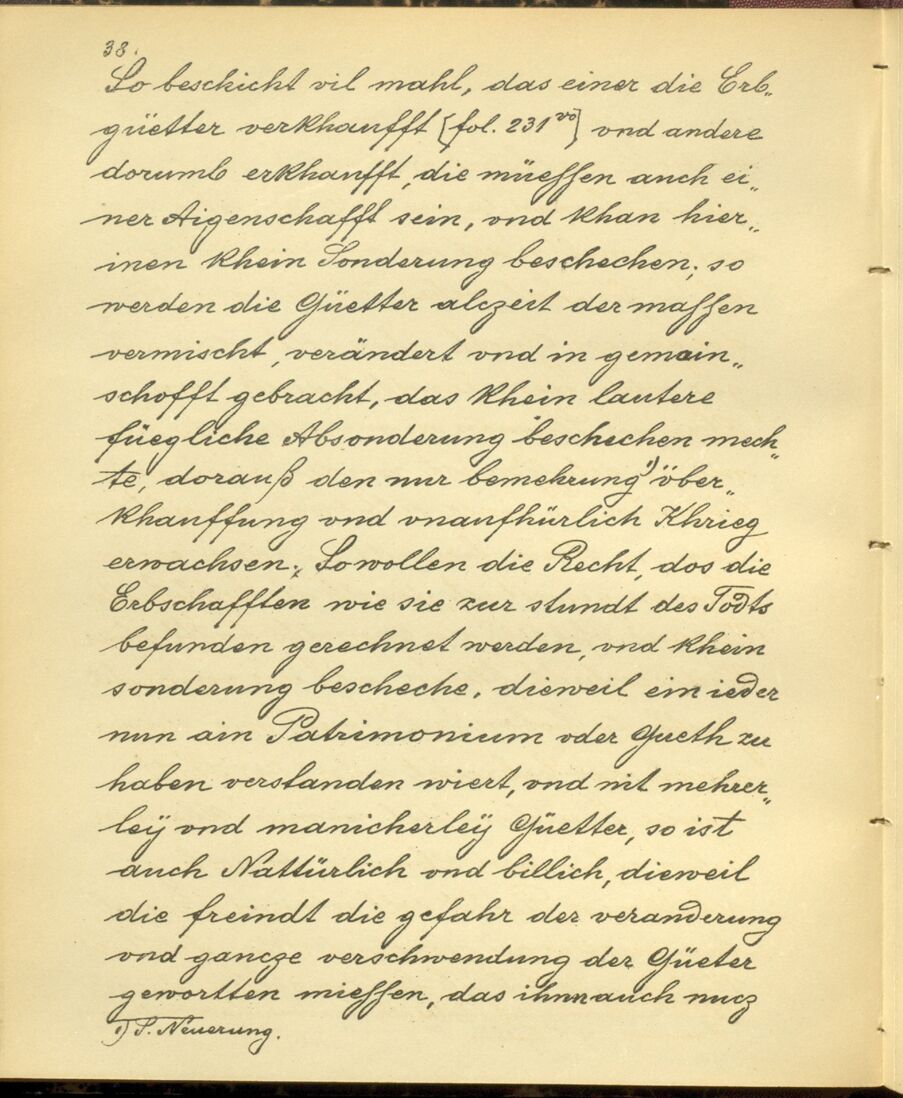 38.
So beschicht vil mahl, das einer die Erb„
güetter verkhaufft [fol. 231 vo] vnd andere
dorumb erkhaufft, die müessen auch ei„
ner Aigenschafft sein, vnd khan hier„
inen khein Sonderung beschechen; so
werden die Güetter alczeit dermassen
vermischt, verändert vnd in gemain„
schofft gebracht, das khein lautere
füegliche Absonderung beschechen mech„
te, dorauß den nur bemehrung 1) über„
khauffung vnd vnaufhürlich Khrieg
erwachsen; So wollen die Recht, dos die
Erbschafften wie sie zur stundt des Todts
befunden gerechnet werden, vnd khein
sonderung bescheche, dieweil ein ieder
nun ain Patrimonium oder Gueth zu
haben verstanden wiert, vnd nit mehrer„
leÿ vnd manicherleÿ Güetter, so ist
auch Nattürlich vnd billich, dieweil
die freindt die gefahr der veranderung
vnd gancze verschwendung der Güeter
gewortten miessen, das ihnn auch nucz
1) S. Neuerung.